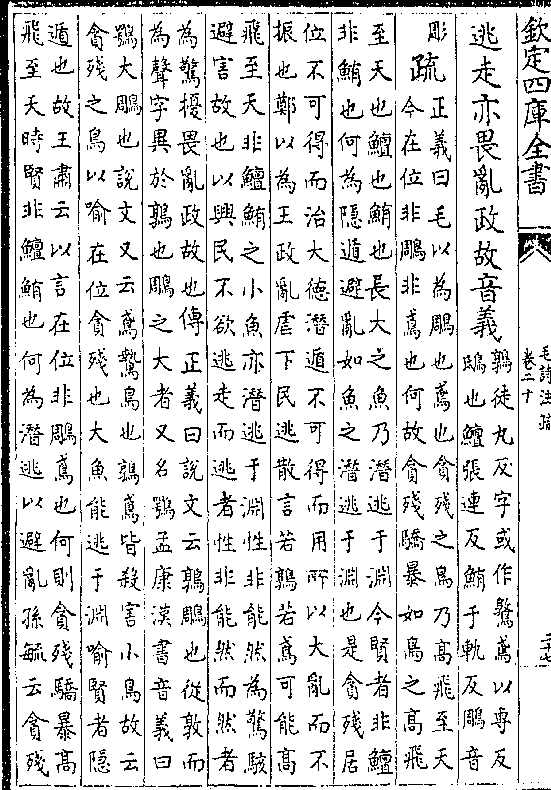 欽定四庫全書
毛詩注疏
卷二十
二十七
逃走亦畏亂政故音義
鶉徒丸反字或作鷻鳶以専反
鴟也鱣張連反鮪于軌反鵰音
彫
疏
正義曰毛以為鵰也鳶也貪殘之鳥乃髙飛至天
今在位非鵰非鳶也何故貪殘驕暴如鳥之高飛
至天也鱣也鮪也長大之魚乃潜逃于淵今賢者非鱣
非鮪也何為隱遁避亂如魚之潜逃于淵也是貪殘居
位不可得而治大徳潜遁不可得而用所以大亂而不
振也鄭以為王政亂虐下民逃散言若鶉若鳶可能高
飛至天非鱣鮪之小魚亦潜逃于淵性非能然為驚駭
避害故也以興民不欲逃走而逃者性非能然而然者
為驚擾畏亂政故也傳正義曰説文云鶉鵰也從敦而
為聲字異於鶉也鵰之大者又名鶚孟康漢書音義曰
鶚大鵰也説文又云鳶鷙鳥也鶉鳶皆殺害小鳥故云
貪殘之鳥以喻在位貪殘也大魚能逃于淵喻賢者隱
遁也故王肅云以言在位非鵰鳶也何則貪殘驕暴高
飛至天時賢非鱣鮪也何為潜逃以避亂孫毓云貪殘